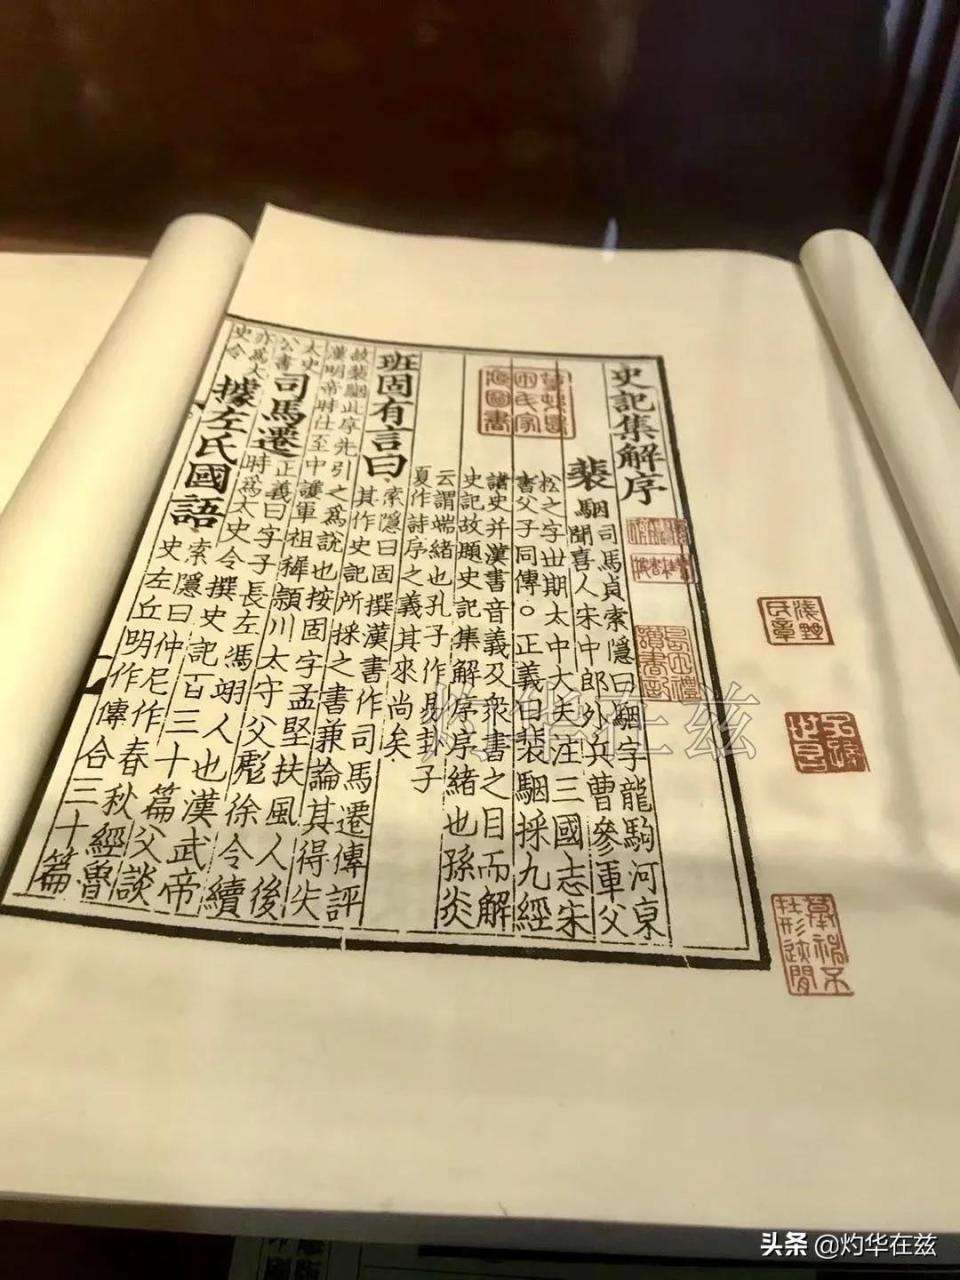 史記集解序
裴駰
司馬貞索隱曰駰字龍駒河東
聞喜人宋中郎外兵曹參軍父
松之字丗期太中大夫注三國志宋
書父子同傳○正義曰裴駰採九經
諸史并漢書音義及衆書之目而解
史記故題史記集解序序緒也孫炎
云謂端緒也孔子作易卦子
夏作詩序之義其來尚矣
班固有言曰
索隱曰固撰漢書作司馬遷傳評
其作史記所採之書兼論其得失
故裴駰此序先引之爲說也按固字孟堅扶風人後
漢明帝時仕至中護軍祖穉潁川太守父彪徐令續
太史
公書
司馬遷
正義曰字子長左馮翊人也漢武帝
時爲太史令撰史記百三十篇父談
亦爲太
史令
據左氏國語
索隱曰仲尼作春秋經魯
史左丘明作傳合三十篇
灼华在兹
头条 @灼华在兹